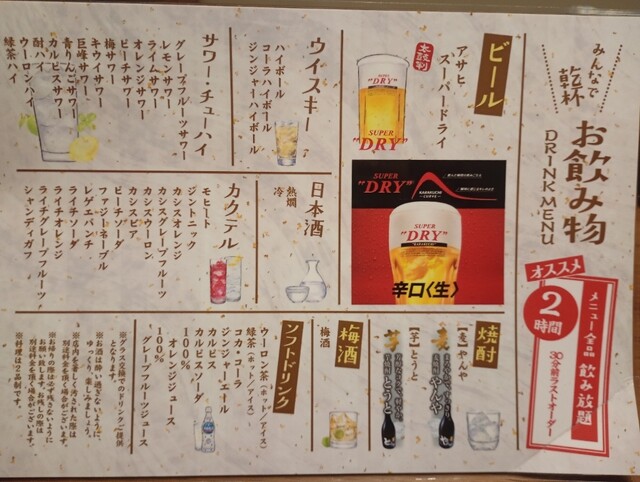 みんなで
乾杯
お飲み物
DRINK MENU
オススメ
2時間
メニュー全品飲み放題
30分前ラストオーダー
ビール
アサヒ
スーパードライ
SUPER
"DRY"
SUPER
"DRY"
SUPER
"DRY"
KARAKUCHI
CURVE
SUPER
"DRY"
辛口〈生〉
ウイスキー
ハイボール
コーラハイボール
ジンジャーハイボール
サワー・チューハイ
グレープフルーツサワー
レモンサワー
ライムサワー
オレンジサワー
ピーチサワー
梅サワー
キウイサワー
巨峰サワー
青りんごサワー
カルピスサワー
酎ハイ
ウーロンハイ
緑茶ハイ
日本酒
熱燗
冷
カクテル
モヒート
ジントニック
カシスオレンジ
カシスグレープフルーツ
カシスウーロン
カシスビア
ピーチソーダ
ファジーネーブル
レゲエパンチ
ライチソーダ
ライチオレンジ
ライチグレープフルーツ
シャンディガフ
焼酎
【麦】やんや
麦焼酎
やんや
【芋】とうと
芋
芋焼酎
とうと
梅酒
梅酒
ソフトドリンク
ウーロン茶(ホット/アイス)
緑茶(ホット/アイス)
コカ・コーラ
ジンジャーエール
カルピス
カルピスソーダ
100%
オレンジジュース
100%
グレープフルーツジュース
※グラス交換でのドリンクご提供
となります。
※お酒は飲み過ぎないように、
ゆっくり、楽しみましょう。
※店内を著しく汚された際は
別途料金を頂く場合がございます。
※お帰りの際は必ず残さないように
お願い致します。お残しの際は
別途料金を頂く場合がございます。
※料理は2品制です。